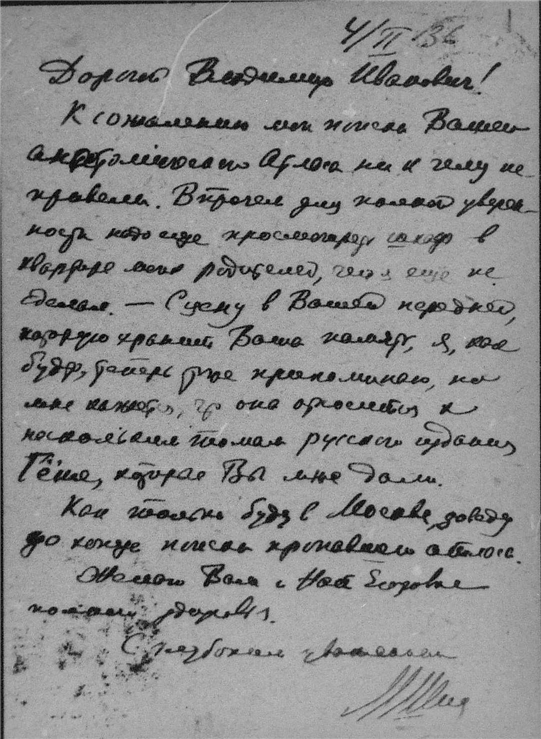 4/II 36
Дорогой Владимир Иванович!
К сожалению мои поиски Вашего
анатомического Атласа ни к чему не
привели. Впрочем для полной уверен-
ности надо еще просмотреть шкаф в
квартире моих родителей, чего я еще не
сделал. — Сцену в Вашей передней,
которую хранит Ваша память, я, как
будто, теперь тоже припоминаю, но
мне кажется, что она относится к
нескольким томам русского издания
Гёте, которые Вы мне дали.
Как только буду в Москве, доведу
до конца поиски пропавшего атласа.
Желаю Вам и Наб Егоровне
полного здоровья.
С глубоким уважением